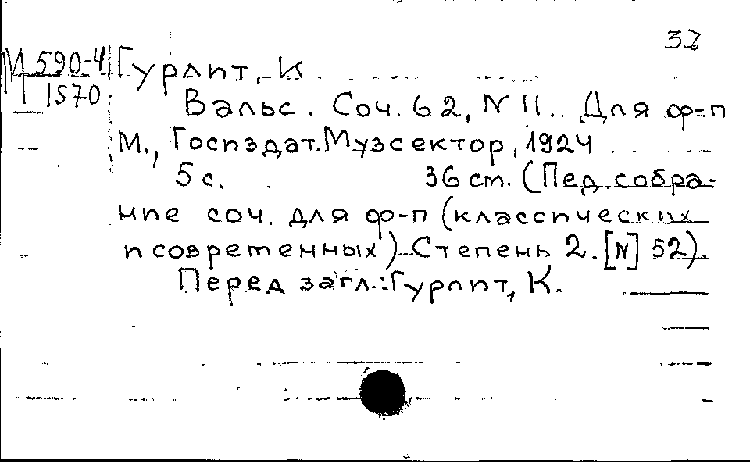 37
М 590-4 Гурлит, К
1570
Вальс. Соч. 62, N 11. Для ф-п
М., Госиздат. Музсектор, 1924
5 с. 36 ст. (Пед. собра-
ние соч. для ф-п (классических
и современных) Степень 2. [N] 52).
Перед загл.: Гурлит, К.